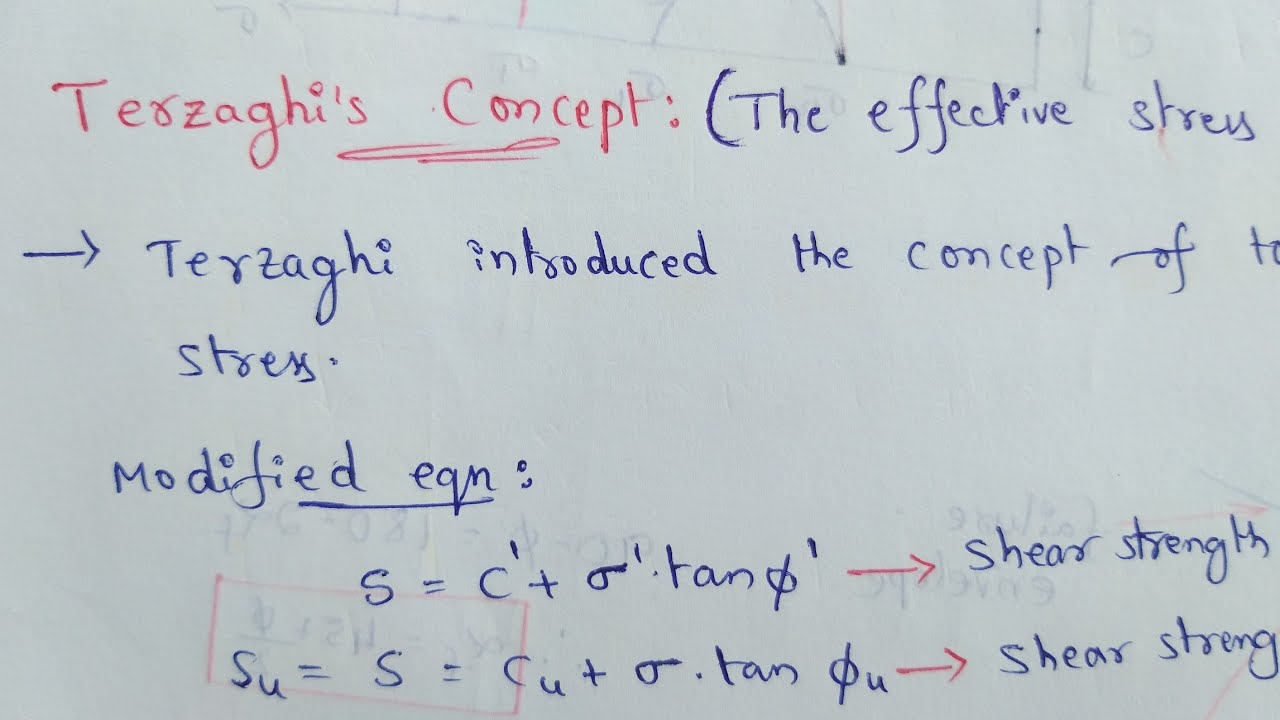 Terzaghi's Concept: (The effective stress
→ Terzaghi introduced the concept of
stress.
Modified eqn:
S = C' + σ'.tanϕ' → shear strength
Su = S = Cu + σ.tan ϕu → shear